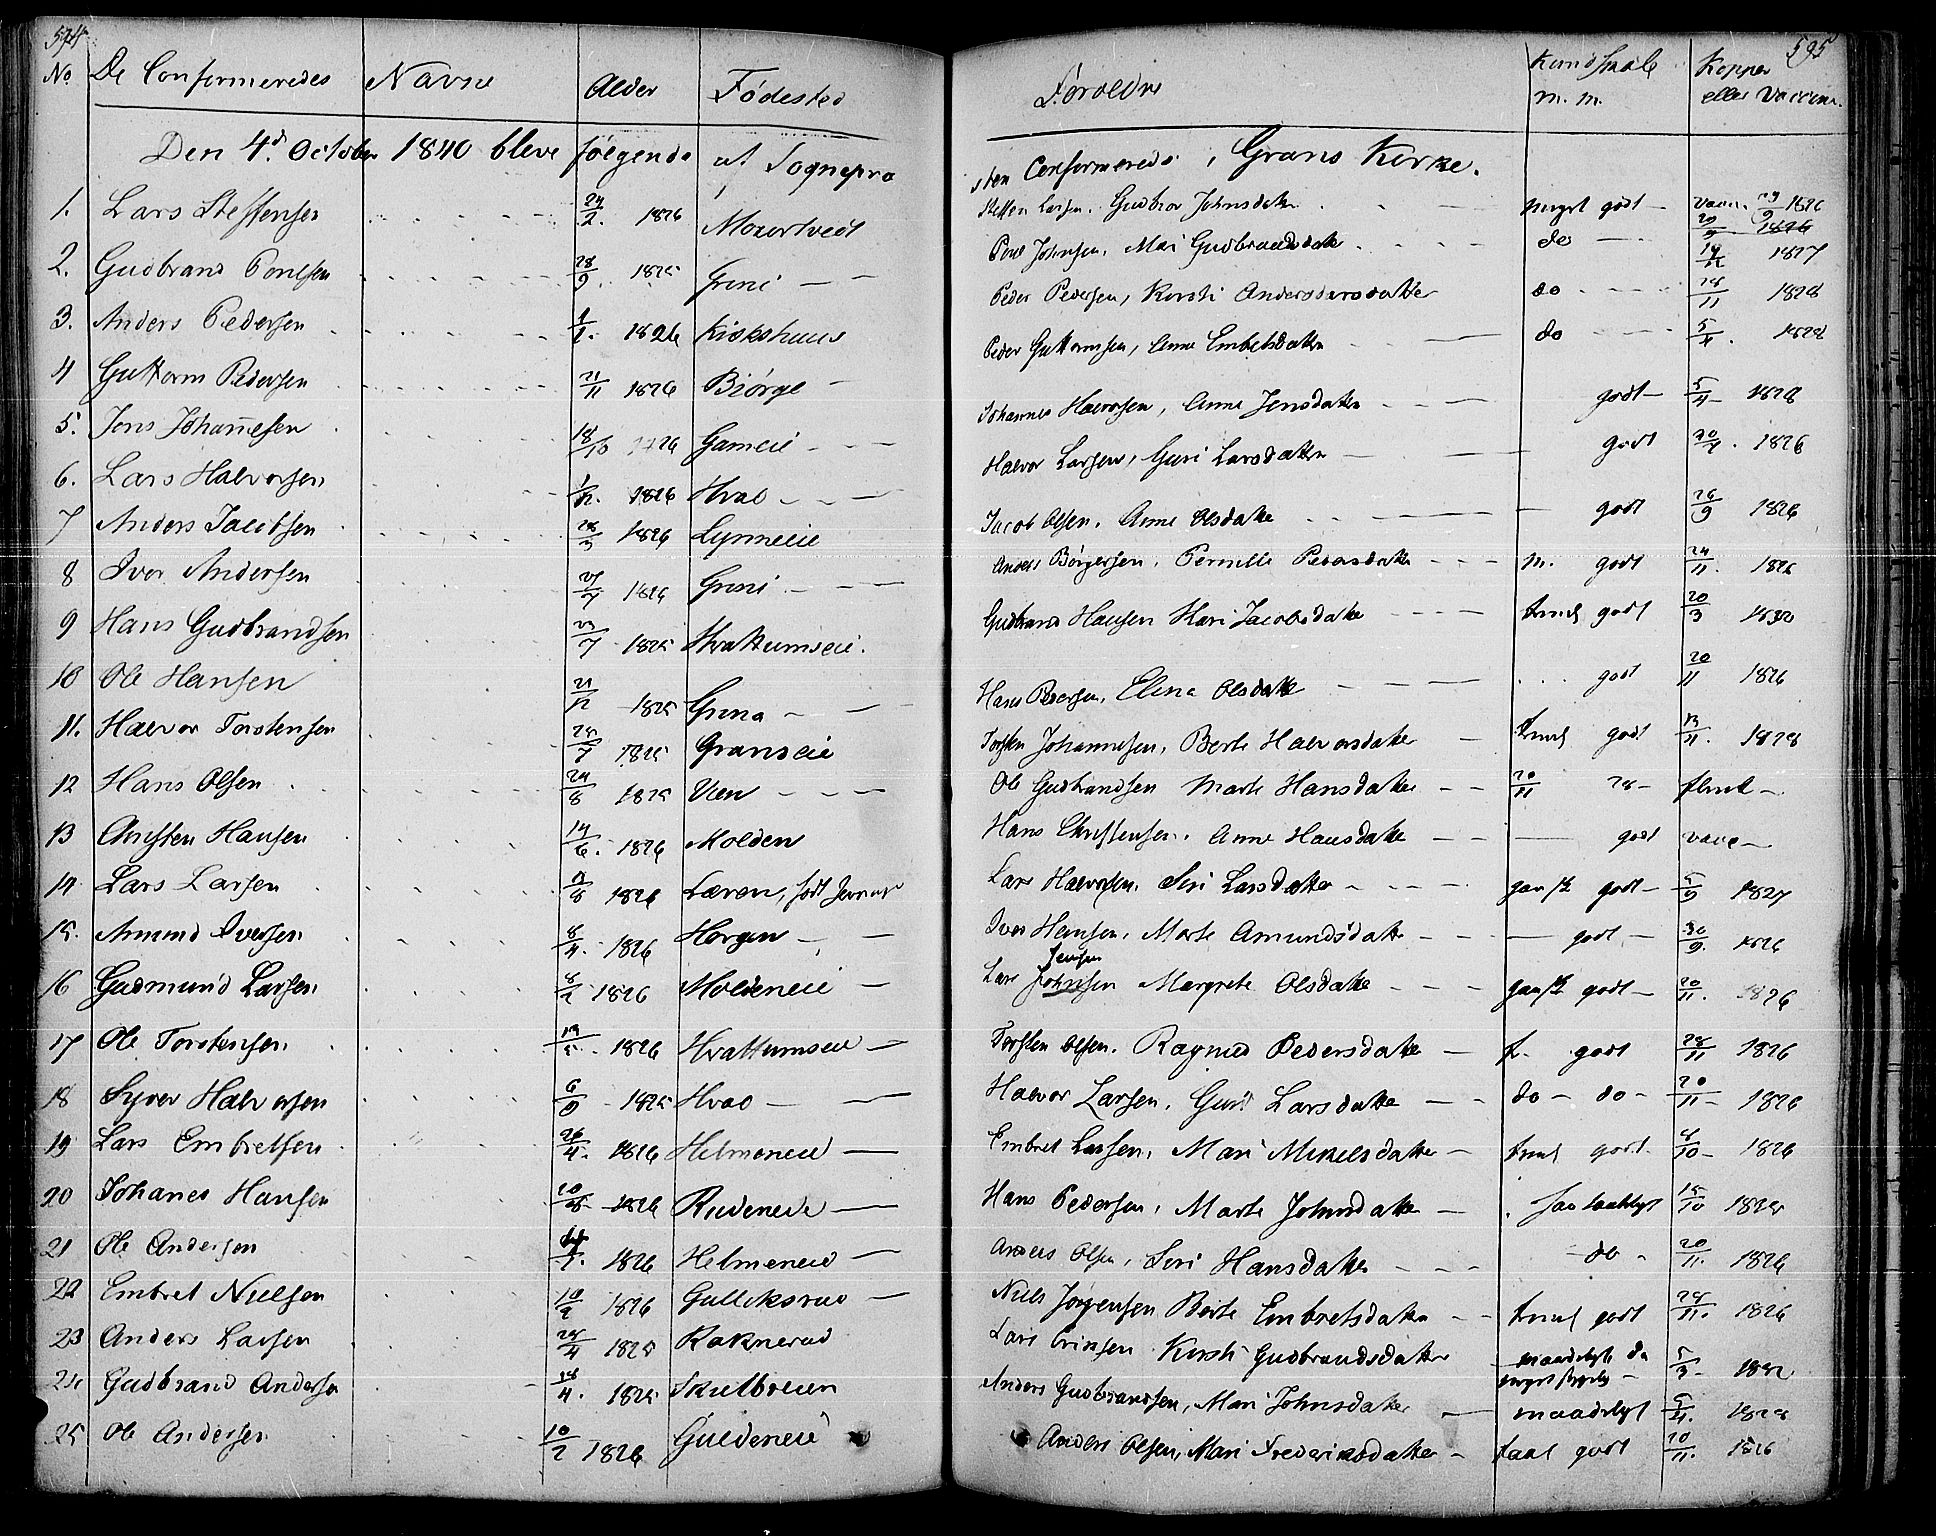 594
No De Confermeredes Navne Alder Fødested
Forældre Kundskab m. m. Kopper eller Vaccine. 595
Den 4d October 1840 bleve følgende af Sognepræ
sten Confermerede i Grans Kirke.
1. Lars Steffensen 1826 Steffen Larsen. Gudbror Johnsdatter meget godt vacc. 1826
2. Gudbrand Poulsen 28/9 1825 Grini Poul Johnsen. Mari Gudbrandsdatter do 1827
3. Anders Pedersen 1826 Kiokshuus Peder Pedersen, Kersti Andersdatter do 28/11 1828
4 Guttorm Pedersen 21/11 1826 Biörge Peder Guttormsen, Anne Embretsdatter do 5/4. 1828
5. Jens Johannesen 18/10 1826 Gameie Johannes Halvorsen, Anne Jensdatter godt 5/4 1828
6. Lars Halvorsen 1826 Hval Halvor Larsen, Guri Larsdatter godt 1826
7 Anders Jacobsen 1826 Lynneeie Jacob Olsen. Anne Olsdatter godt 26/9 1826
8 Iver Andersen 1826 Grini Anders Börgersen. Pernille Pedersdatter m. godt 24/11. 1826
9 Hans Gudbrandsen 23/7 1825 Hvattumseie. Gudbrand Hansen Kari Jacobsdatter temel godt 20/3 1830
10 Ole Hansen 21/12 1825 Grina Hans Pedersen. Elene Olsdatter godt 20/11 1826
11. Halvor Torstensen 28/7 1825 Granseie Torsten Johannesen. Berte Halvorsdatter temel godt 1828
12 Hans Olsen 24/8 1825 Uen Ole Gudbrandsen Marte Hansdatter 20/11 28
13 Christen Hansen 14/6. 1826 Molden Hans Christensen. Anne Hansdatter godt vacc
14 Lars Larsen 1826 Lars Halvorsen. Siri Larsdatter ganske godt 5/9 1827
15. Amund Iversen 8/4 1826 Horgen Iver Hansen. Marte Amundsdatter godt 30/9. 1826
16 Gudmund Larsen 8/2 1826 Moldeneie Lars Johnsen Jensen Margrete Olsdatter ganske godt 20/11. 1826
17 Ole Torstensen 1826 Hvattumseie Torsten Olsen. Ragnild Pedersdatter t. godt 28/11 1826
18 Syver Halvorsen 6/9 1825 Hval Halvor Larsen. Guri Larsdatter do do 20/11 1826
19 Lars Embretsen 26/4. 1826 Helmeneie Embret Larsen. Mari Mikelsdatter temel godt. 8/10 1826
20 Johanes Hansen 1826 Rudeneie Hans Pedersen, Marte Johnsdatter 15/10 1828
21 Ole Andersen 1826 Helmeneie Anders Olsen, Siri Hansdatter do 20/11. 1826
22 Embret Nielsen 10/2 1826 Gulleksrud Niels Jörgensen Berte Embretsdatter temel godt 28/11. 1826
23 Anders Larsen 28/4 1825 Raknerud Lars Erinsen Kersti Gudbrandsdatter maadeligt 5/3 1832
24 Gudbrand Andersen 18/4. 1825 Skulbreien Anders Gudbrandsen, Mari Johnsdatter maadeligt 5/4. 1828
25 Ole Andersen 10/2 1826 Guldeneie Anders Olsen, Mari Frederiksdatter taal godt 20/11. 1826